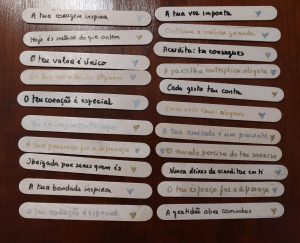 A tua coragem inspira
Hoje és melhor do que ontem
O teu valor é único
O teu coração é especial
A tua presença faz a diferença
Obrigada por seres quem és
A tua bondade inspira
O teu coração é especial
A tua voz importa
Continua a sonhar grande
Acredita: tu consegues
A partilha multiplica alegria
Cada gesto teu conta
Onde vais levas alegria
A tua amizade é um presente
O mundo precisa do teu sorriso
Nunca deixes de acreditar em ti
O teu esforço faz a diferença
A gratidão abre caminhos